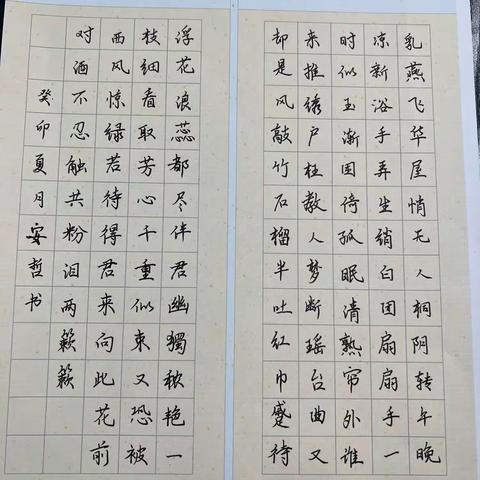 乳燕飞华屋悄无人桐阴转午晚
凉新浴手弄生绡白团扇扇手一
时似玉渐困倚孤眠清熟帘外谁
来推绣户枉教人梦断瑶台曲又
却是风敲竹石榴半吐红巾蹙待
浮花浪蕊都尽伴君幽獨秾艳一
枝细看取芳心千重似束又恐被
西风惊绿若待得君来向此花前
对酒不忍触共粉泪两簌簌
癸卯夏月安哲书